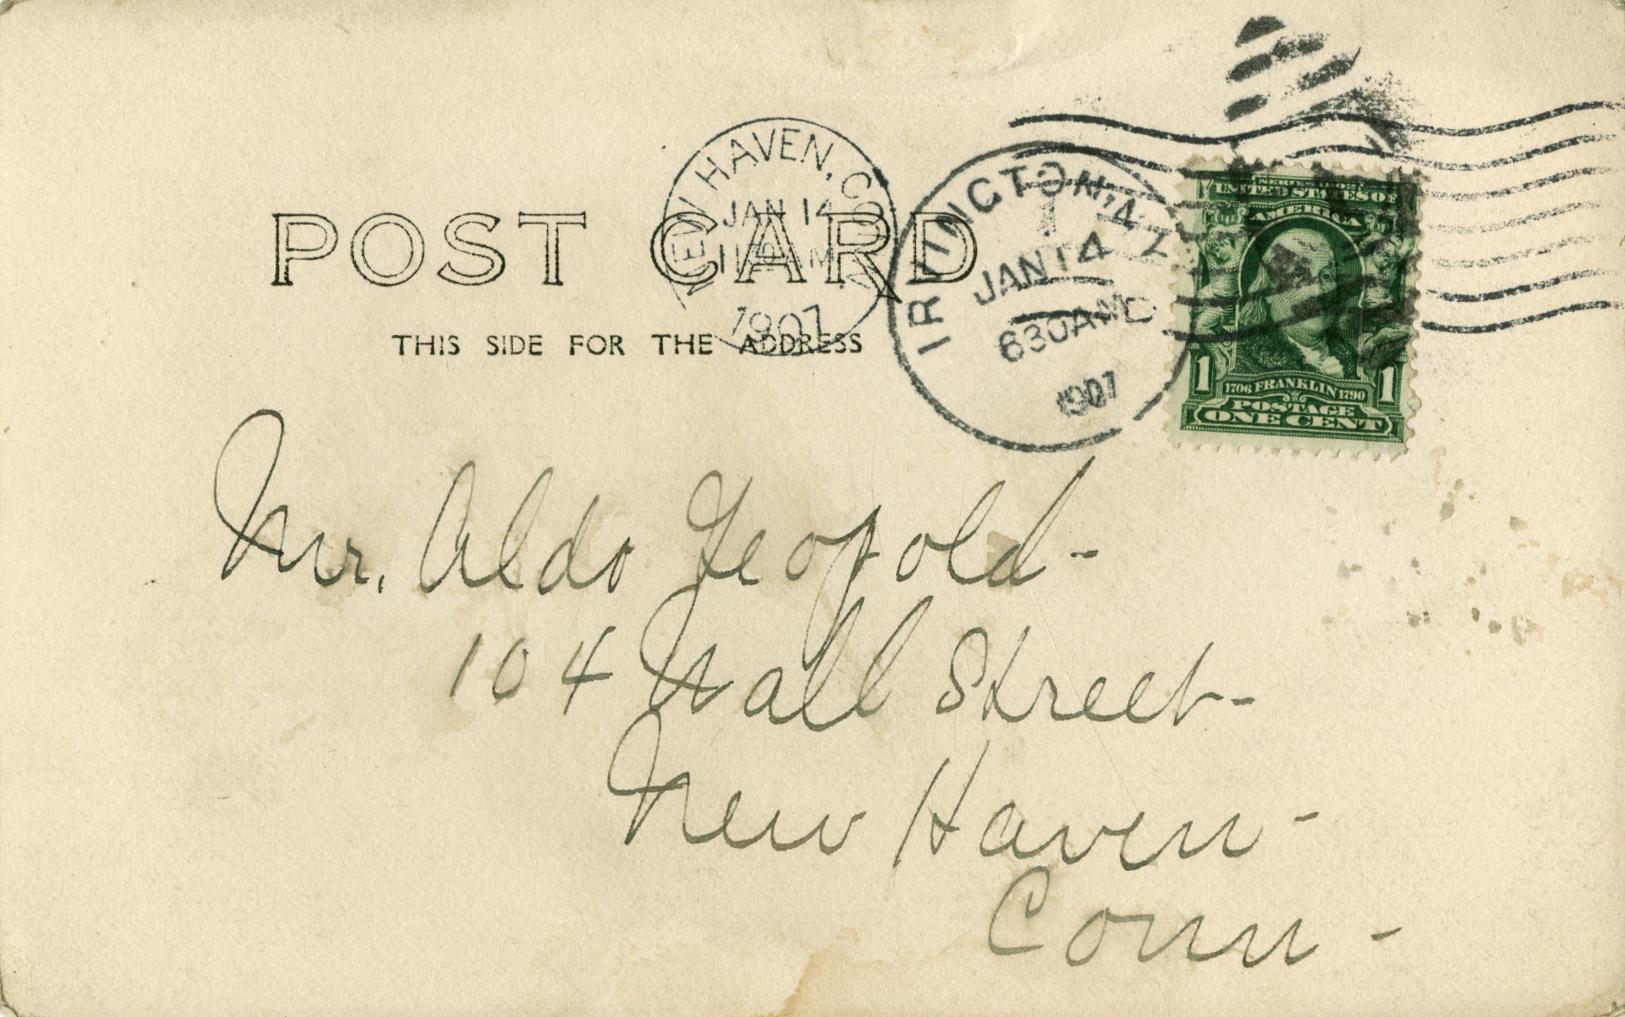 NEW HAVEN, CO
JAN 14
11 AM
1907
IRVINGTON,
JAN 14
630AM
1907
SERIES 1902
UNITED STATES OF
AMERICA
1 1
1706 FRANKLIN 1790
POSTAGE
ONE CENT
POST CARD
THIS SIDE FOR THE ADDRESS
Mr. Aldo Leopold-
104 Wall Street-
New Haven-
Conn-